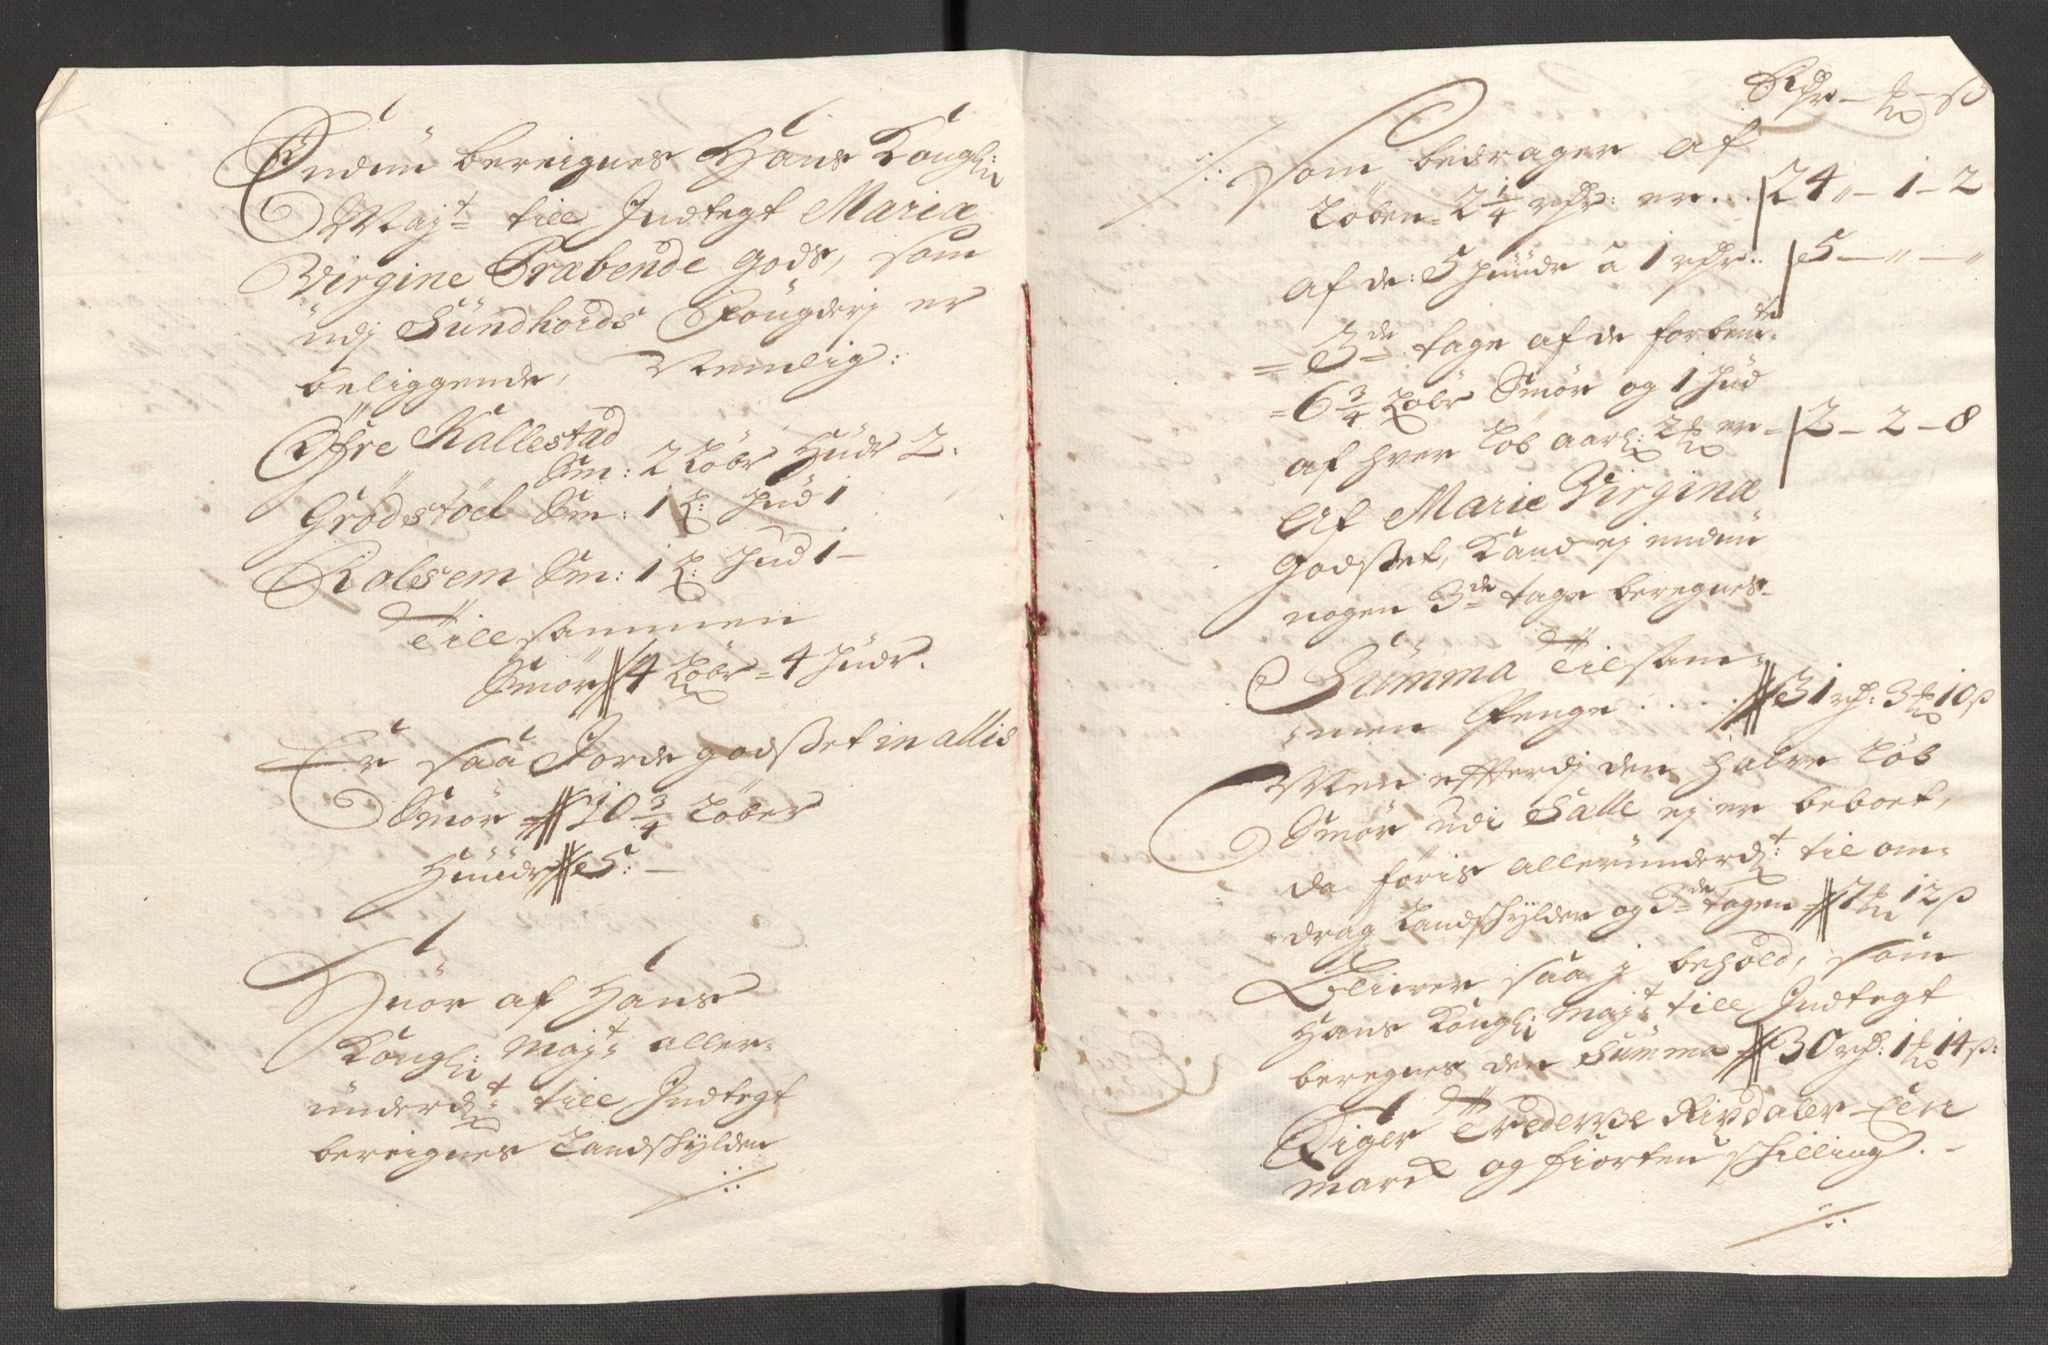 Endnu bereignes Hans Kongl:
Majt: till Indtegt Maria
Virginæ Præbende gods, som
udj Sundhords Fougderj er
beliggende, Nemlig:
Øfre Kallestad
Sm: 2 Løbr Hudr 2:
Grødstøel Sm: 1 L: Hud 1
Rolsem Sm: 1 L: Hud 1 –
Till sammen
Smør 4 Løbr = 4 Hudr.
Er saa Jorde godset in alliß
Smør 10 3/4 Løber
Huudr 5: –
Huor af Hans
Kongl: Majt: aller-
underdt: till Indtegt
bereignes Landschylden
Rdr – mk – ß
Som bedrager af
Løben 2 1/4 rdr: er . . 24 „ – 1 – 2
af de: 5 huude a 1 rdr: 5 – „ – „
3de tage af de forbemte
6 3/4 Løbr Smør og 1 hud
af hver Løb aarl: 2 mk er – 2 – 2 – 8
Af Marie Virginæ
godset, kand ej endnu
nogen 3de tage beregnes –
Summa Tilsam-
men Penge . . . . 31 rdr: 3 mk 10 ß
Men efterdj den halve Løb
Smør udi Salle ej er beboet,
da føris allerunderdt: til om-
drag Landschylden og 3de tagen 12 ß
Bliver saa j behold, som
Hans Kongl: Majt: till Indtegt
beregnes den Summa 30 rdr: 1 mk 14 ß:
Siger Tredeve Rixdaler Een
marck og fiorten schilling. –